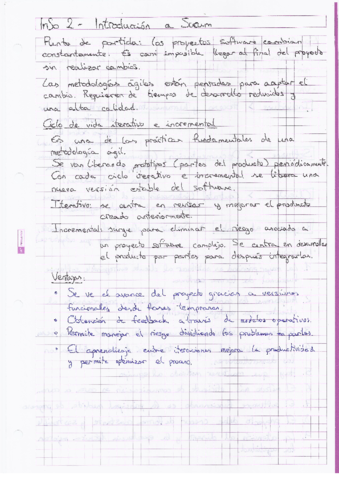 InSo 2 - Introducción a Scrum
Punto de partida: los proyectos software cambian
constantemente. Es casi imposible llegar al final del proyecto
sin realizar cambios.
Las metodologías ágiles están pensadas para aceptar el
cambio. Requieren de tiempos de desarrollo reducidos y
una alta calidad.
Ciclo de vida iterativo e incremental
Es una de las prácticas fundamentales de una
metodología ágil.
Se van liberando prototipos (partes del producto) periódicamente.
Con cada ciclo iterativo e incremental se libera una
nueva versión estable del software.
Iterativo: se centra en revisar y mejorar el producto
creado anteriormente.
Incremental: surge para eliminar el riesgo asociado a
un proyecto software complejo. Se centra en desarrollar
el producto por partes para después integrarlas.
Ventajas:
• Se ve el avance del proyecto gracias a versiones
funcionales desde fases tempranas.
• Obtención de feedback a través de estados operativos.
• Permite manejar el riesgo dividiendo los problemas en partes.
• El aprendizaje entre iteraciones mejora la productividad
y permite optimizar el proceso.